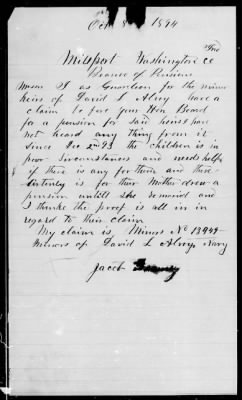 Oct 8 1894
Millport Washington co
Bureau of Pension
I as Guardian for the minor
heirs of David L Alvey have a
claim before your Hon Board
for a pension for said heirs & have
not heard any thing from it
since Dec 2nd 93 the children is in
poor Sircumstances and needs help
if there is any for them and there
sirtenly is for thair Mother drew a
pension untill she remarid and
I thinke the proof is all in in
regard to their claim
My claim is Minors No 13949
Minors of David L Alvey Navy
Jacob